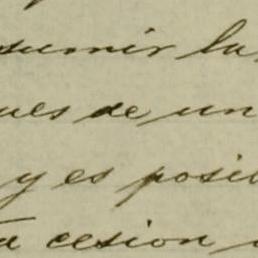 sumir la
ues de un
y es posib
ta cesion